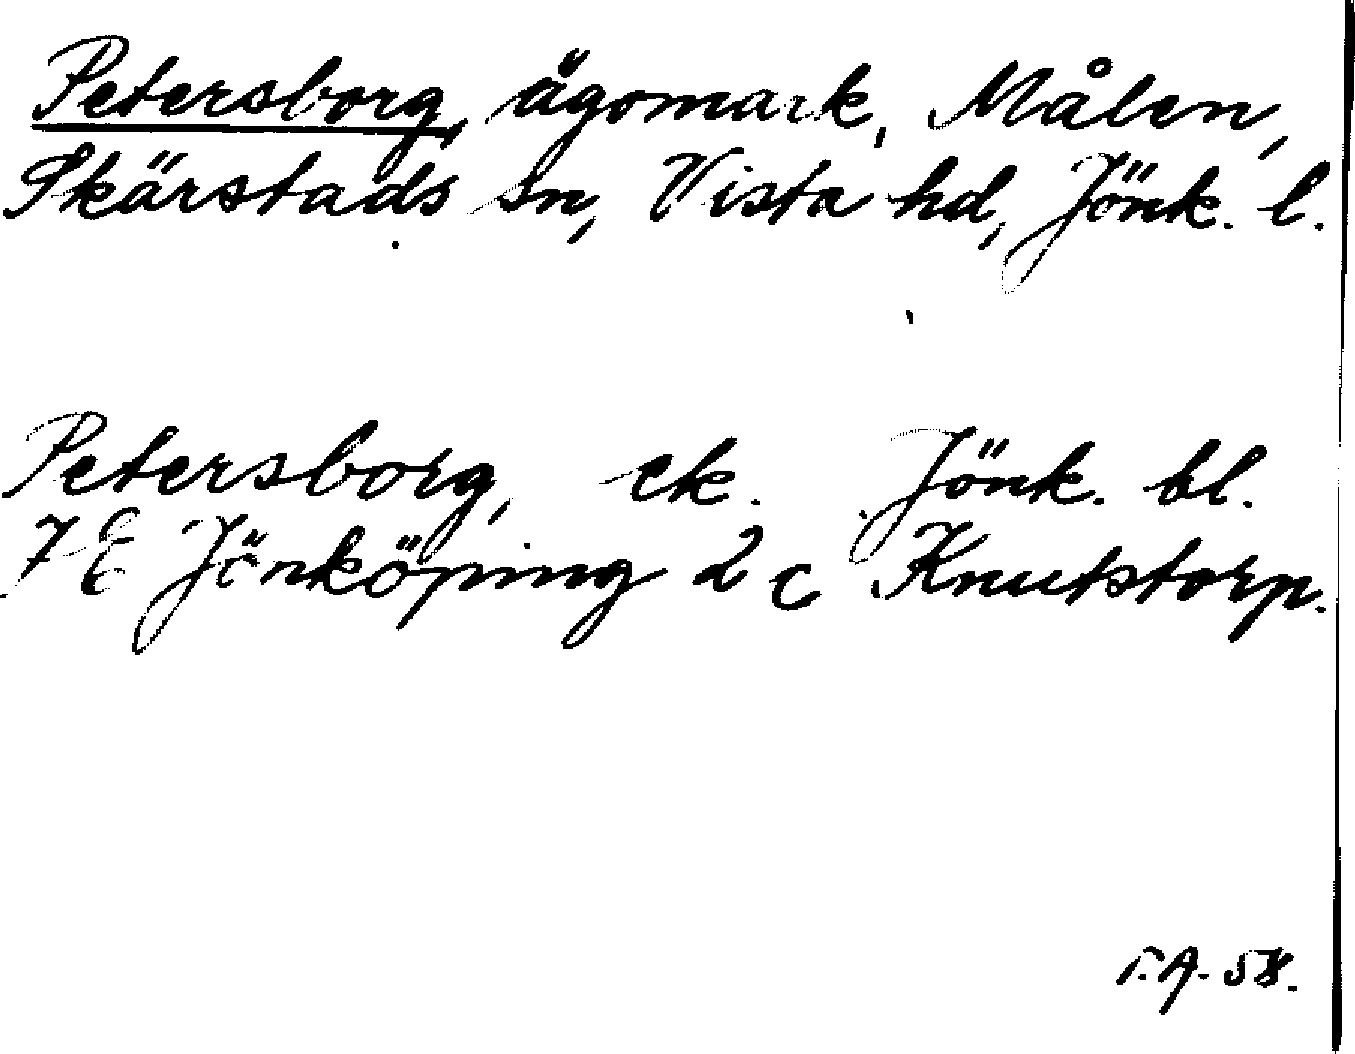 Petersborg, ägomark, Målen,
Skärstads sn, Vista hd, Jönk. l.
Petersborg, ek. Jönk. bl.
7 E Jönköping 2 c Knutstorp.
T.A. 58.